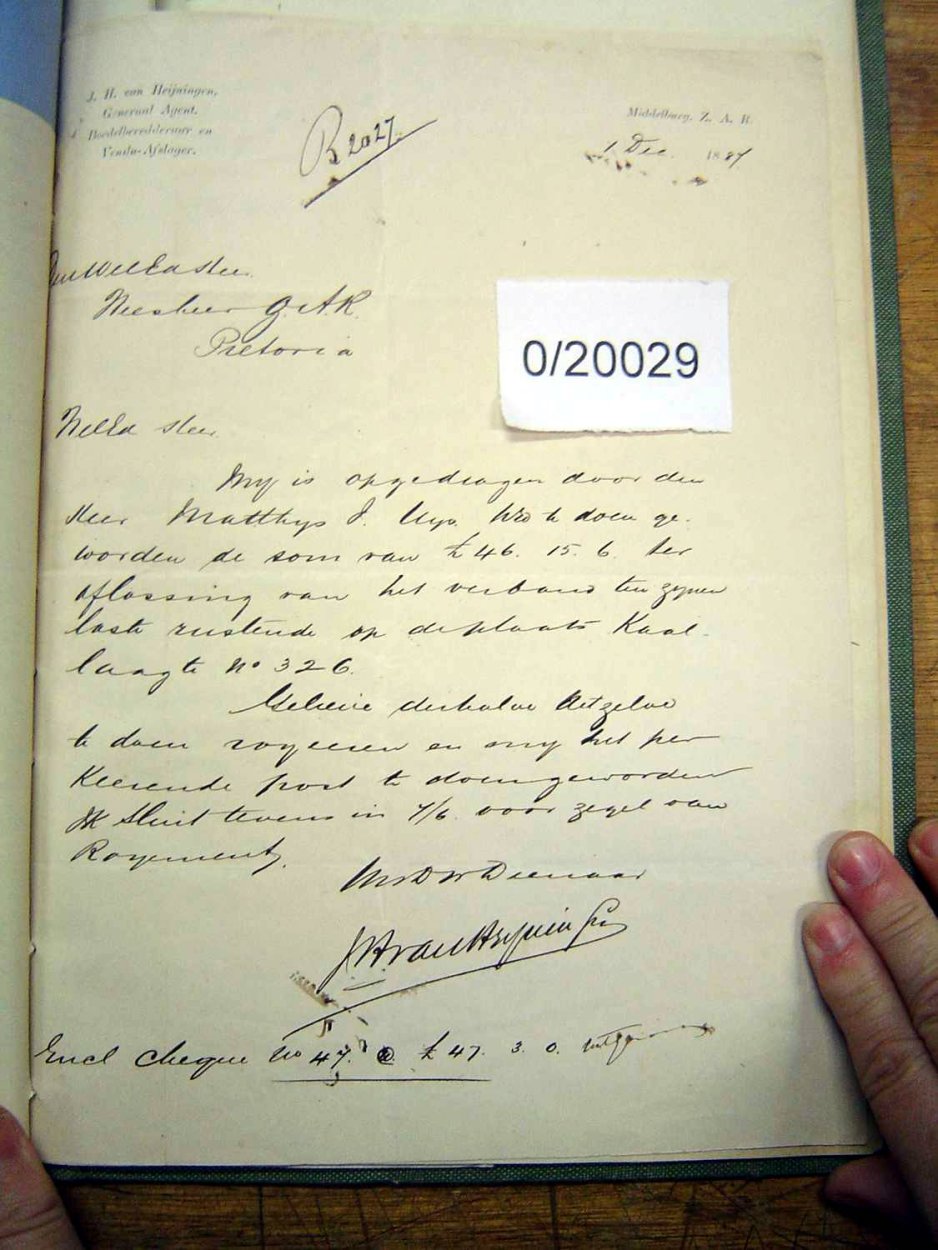 J. H. van Heijningen,
Generaal Agent.
Boedelberedderaar en
Vendu-Afslager.
B 2027
Middelburg, Z. A. R.
1 Dec. 1887
Den WelEd Heer
Weesheer Z.A.R.
Pretoria
0/20029
WelEd Heer
My is opgedragen door den
Heer Matthys J. Uys te doen ge-
worden de som van £46. 15. 6. ter
aflossing van het verband ten zynen
laste rustende op de plaats Kaal-
laagte No 326.
Gelieve derhalve hetzelve
te doen royeeren en my het per
Keerende post te doen geworden
Ik sluit tevens in 7/6 voor zegel van
Royement.
UwEdDW Dienaar
JH van Heijningen
Encl cheque No 47. @ £47. 3. 0.